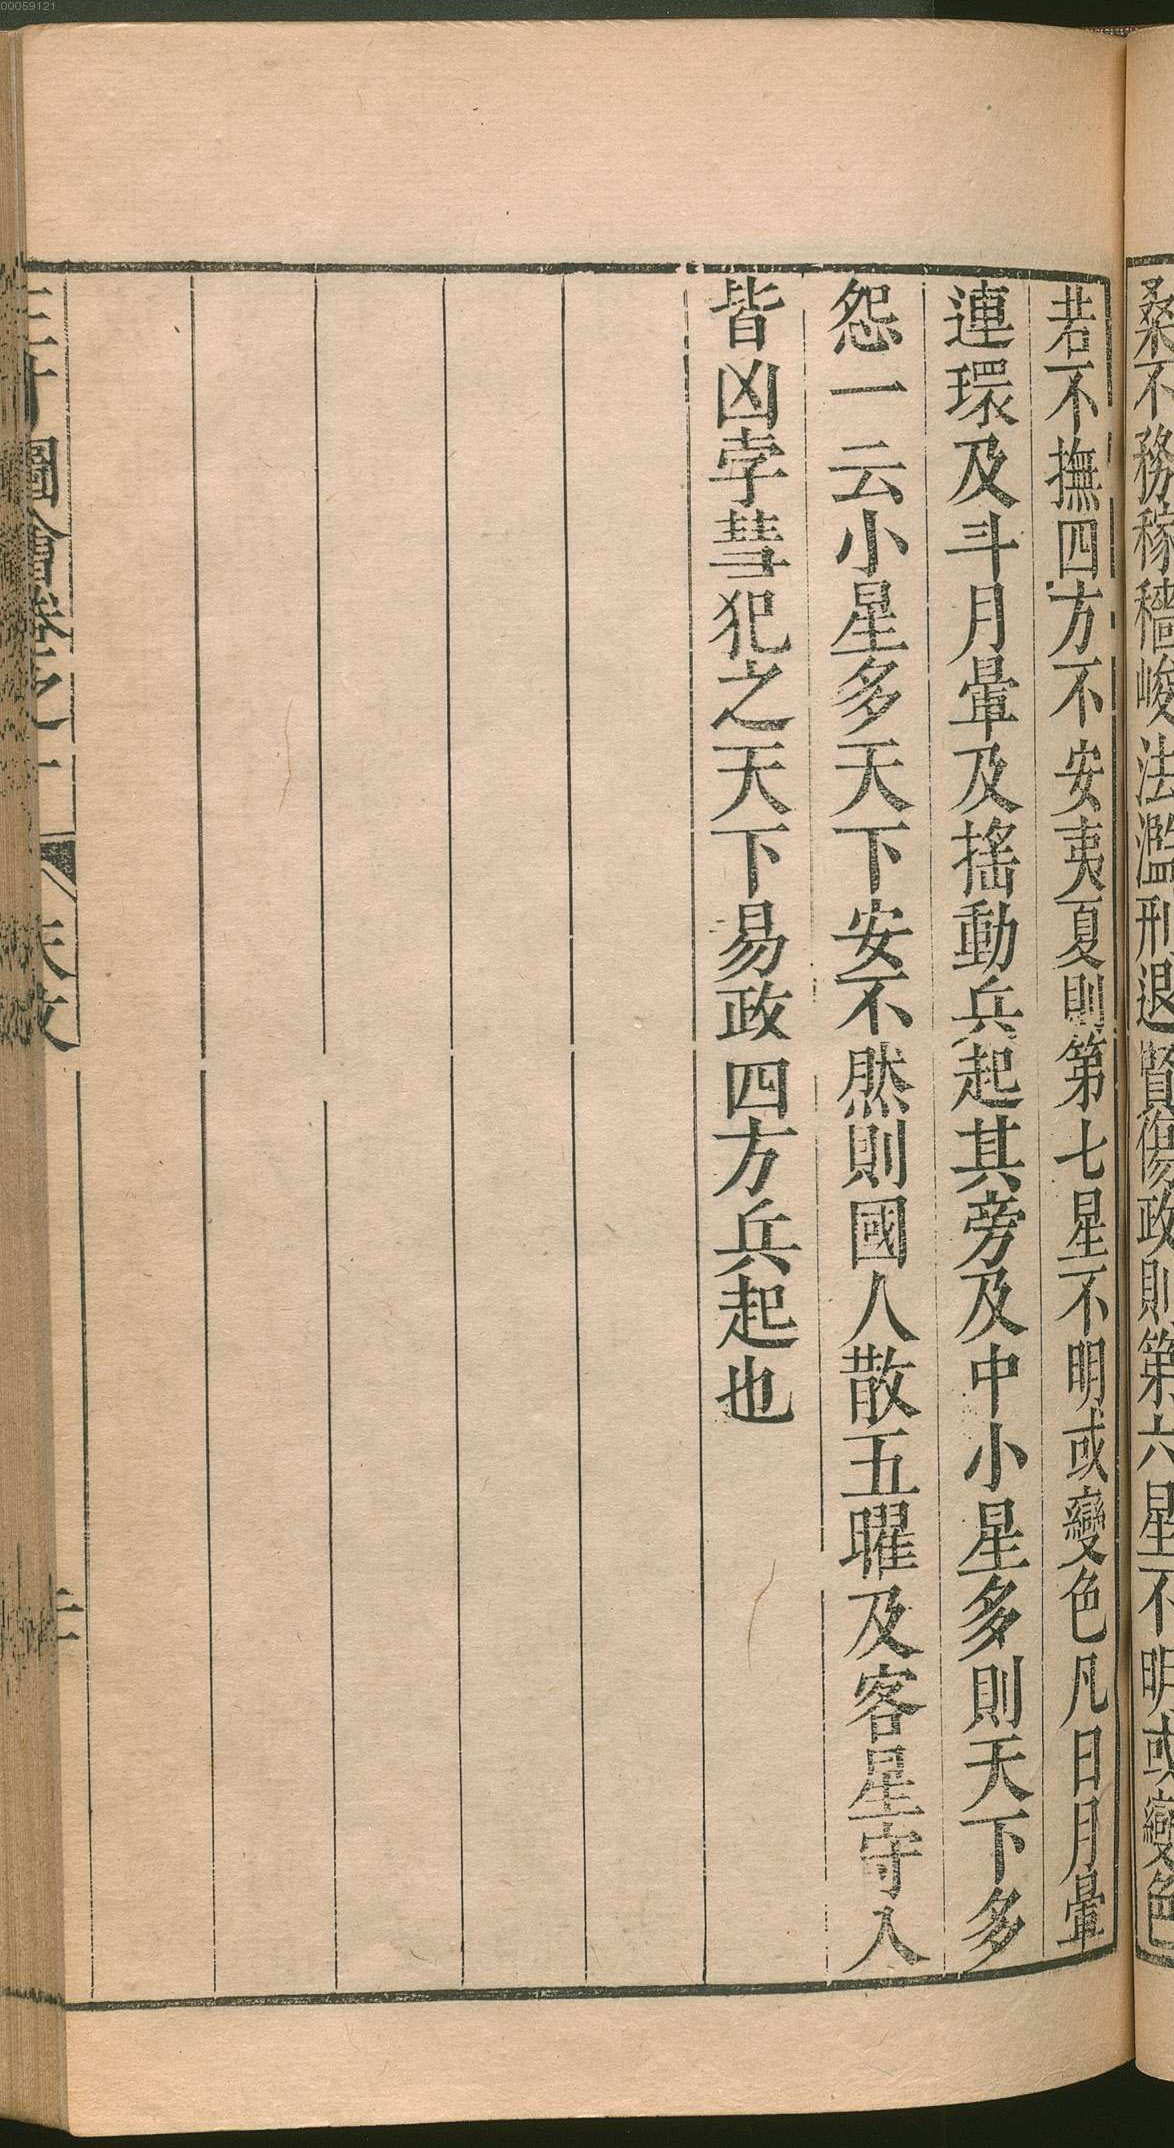 00059121
桑不務稼穡峻法濫刑退賢傷政則第六星不明或變色
若不撫四方不安夷夏則第七星不明或變色凡日月暈
連環及斗月暈及搖動兵起其旁及中小星多則天下多
怨一云小星多天下安不然則國人散五曜及客星守入
皆凶孛彗犯之天下易政四方兵起也
圖會卷之一 天文